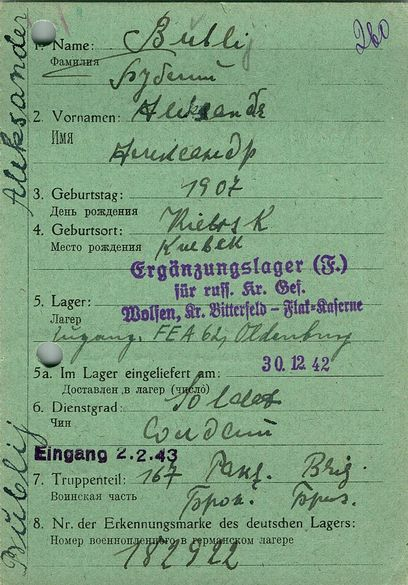 260
Aleksander
1. Name: Bublij
Фамилия
Бублий
2. Vornamen: Aleksande
Имя
Александр
3. Geburtstag: 1907
День рождения
4. Geburtsort: Kiebsk
Место рождения Киебек
Ergänzungslager (F.)
für russ. Kr. Gef.
Wolfen, Kr. Bitterfeld – Flak-Kaserne
5. Lager:
Лагер
Zugang. FEA 62, Oldenburg
30. 12. 42
5a. Im Lager eingeliefert am:
Доставлен в лагер (число)
6. Dienstgrad: Soldat
Чин
Солдат
Eingang 2.2.43
7. Truppenteil: 167 Panz. Brig.
Воинская часть Брон. Бриг.
8. Nr. der Erkennungsmarke des deutschen Lagers:
Номер военнопленного в германском лагере
182922
Bublij